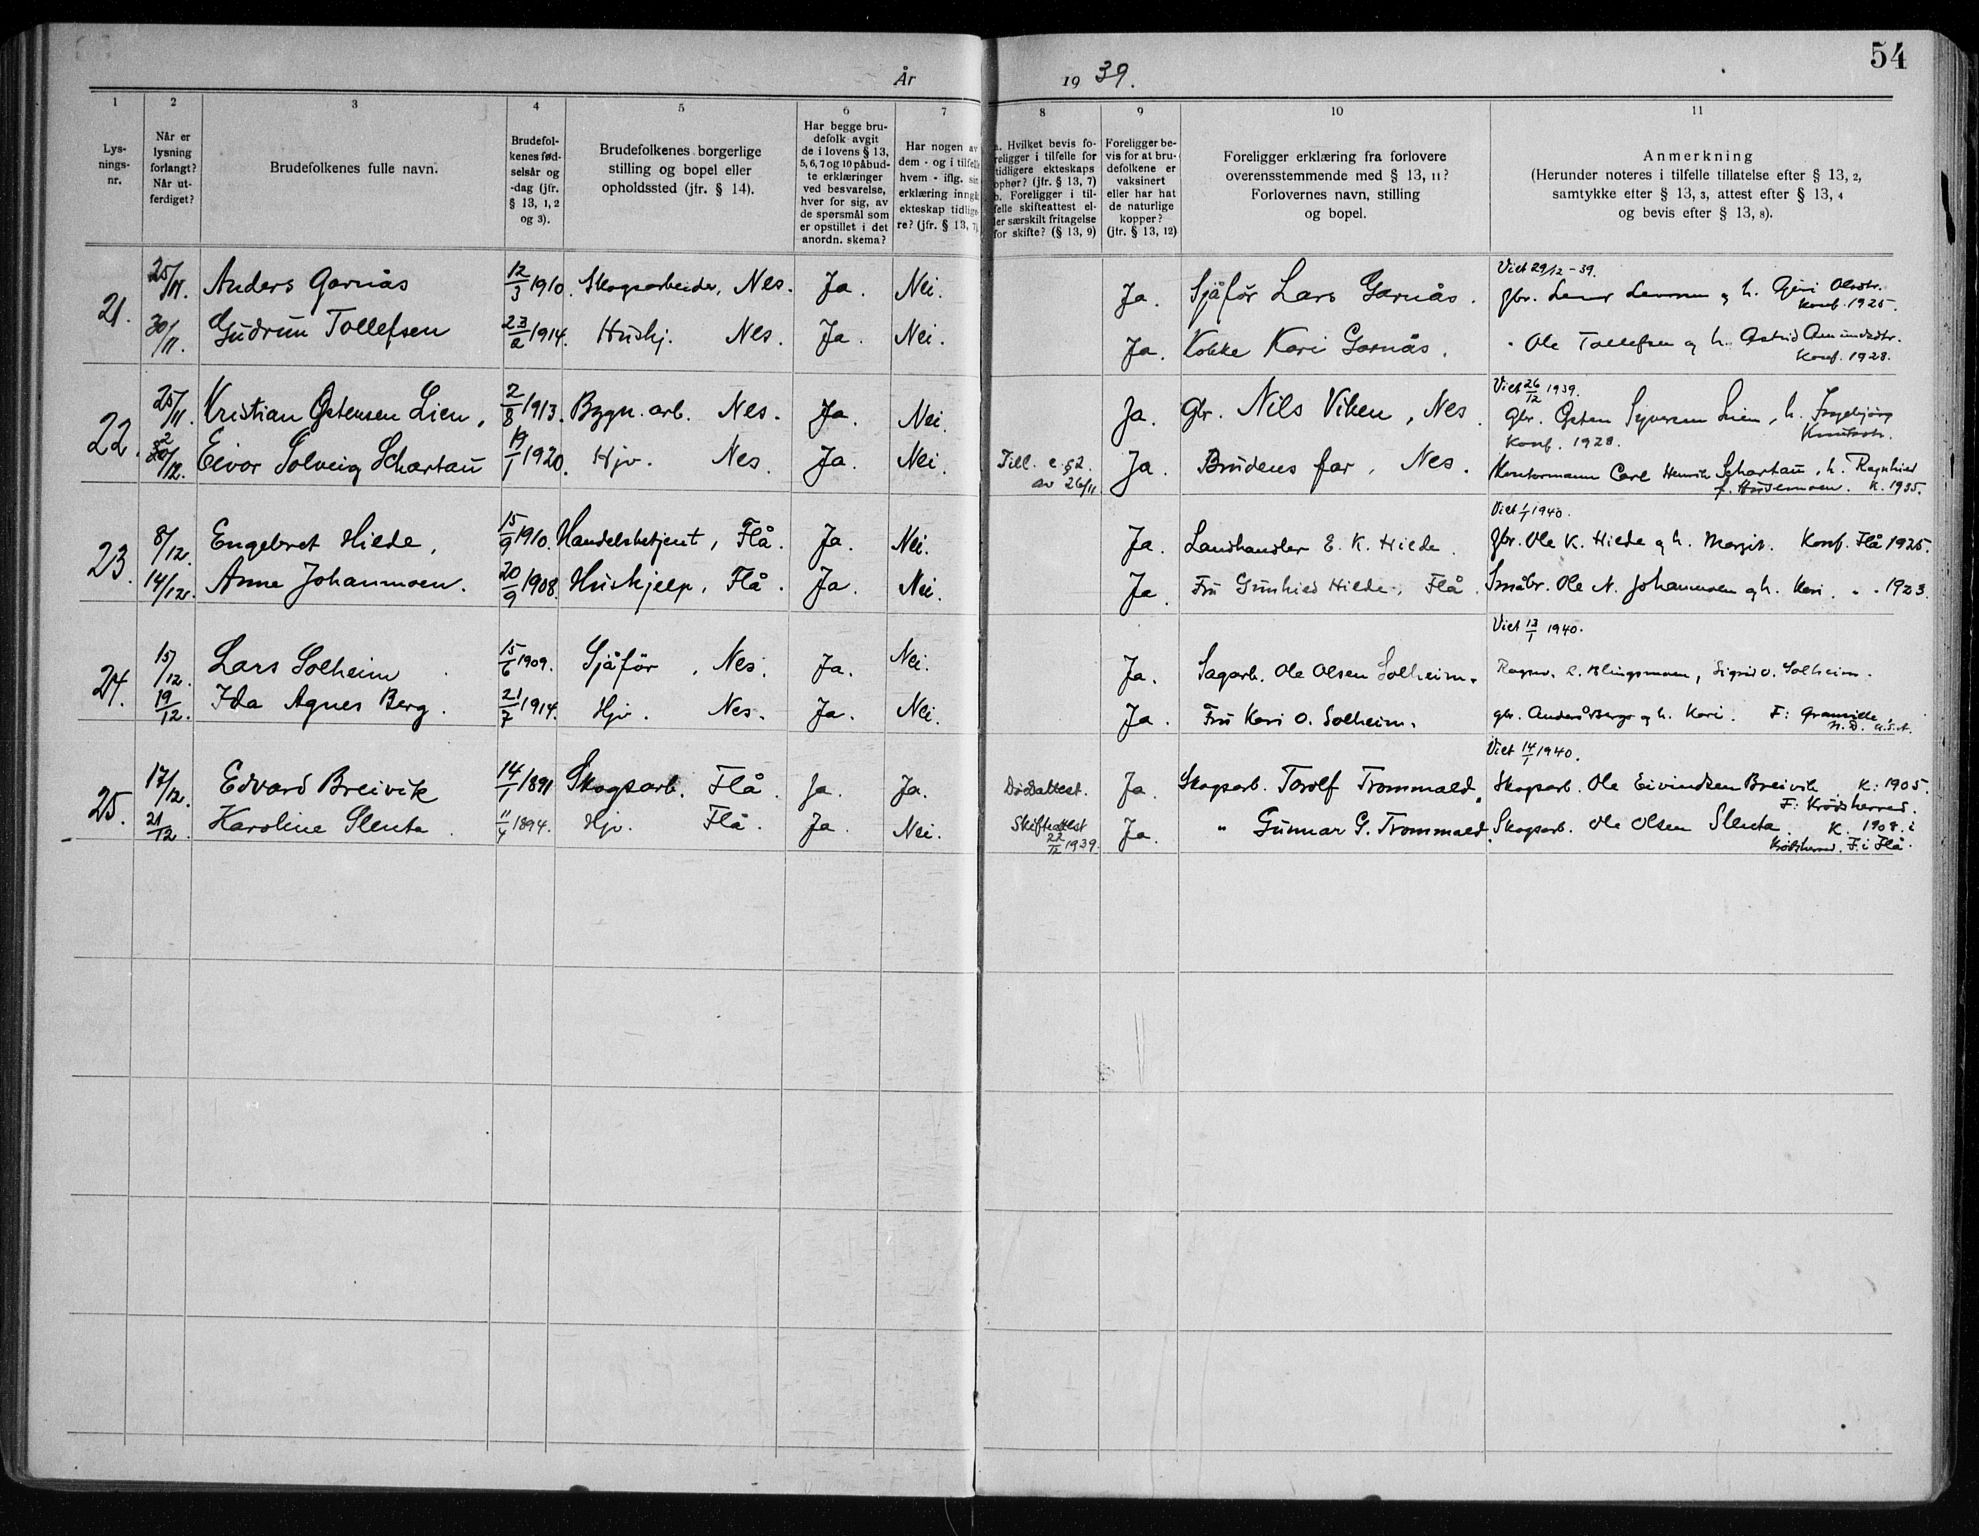 54
År 1939.
1
2
3
4
5
6
7
8
9
10
11
Lys-
nings-
nr.
Når er
lysning
forlangt?
Når ut-
ferdiget?
Brudefolkenes fulle navn.
Brudefol-
kenes fød-
selsår og
-dag (jfr.
§ 13, 1, 2
og 3).
Brudefolkenes borgerlige
stilling og bopel eller
opholdssted (jfr. § 14).
Har begge bru-
defolk avgit
de i lovens § 13,
5, 6, 7 og 10 påbud-
te erklæringer
ved besvarelse,
hver for sig, av
de spørsmål som
er opstillet i det
anordn. skema?
Har nogen av
dem - og i tilfelle
hvem - iflg. sin
erklæring inngå
ekteskap tidlige-
re? (jfr. § 13, 7)
a. Hvilket bevis fo-
religger i tilfelle for
tidligere ekteskaps
ophør? (jfr. § 13, 7)
b. Foreligger i til-
felle skifteattest el-
ler særskilt fritagelse
for skifte? (§ 13, 9)
Foreligger be-
vis for at bru-
defolkene er
vaksinert
eller har hat
de naturlige
kopper?
(jfr. § 13, 12)
Foreligger erklæring fra forlovere
overensstemmende med § 13, 11?
Forlovernes navn, stilling
og bopel.
Anmerkning
(Herunder noteres i tilfelle tillatelse efter § 13, 2,
samtykke efter § 13, 3, attest efter § 13, 4
og bevis efter § 13, 8).
Viet 29/12 - 39.
21. 25/11 Anders Garnås 12/3 1910. Skogsarbeider, Nes. Ja. Nei. Ja. Sjåför Lars Garnås. Gbr. h. Olsdtr.
Konf. 1925.
30/11. Gudrun Tollefsen 23/2 1914. Hushj. Nes. Ja. Nei. Ja. Kokke Kari Garnås. " Ole Tollefsen og h. Astrid Amundsdtr.
Konf. 1928.
Viet 26/12 1939.
22. 25/11. Kristian Østensen Lien, 2/8 1913. Bygn. arb. Nes. Ja. Nei. Ja. Gbr. Nils Viken, Nes. Gbr. Østen Syversen Lien, h. Ingebjørg
Knutsdtr.
Konf. 1928.
2/12. Eivor Solveig Schartau 19/1 1920. Hjv. Nes. Ja. Nei. Till. e. § 2 Ja. Brudens far, Nes. Kontormann Carl Henrik Schartau, h. Ragnhild
av 26/11 f. Husemoen. K. 1935.
Viet 1/1 1940.
23. 8/12. Engebret Hilde, 15/9 1910. Handelsbetjent, Flå. Ja. Nei. Ja. Landhandler E. K. Hilde. Gbr. Ole K. Hilde og h. Margit. Konf. Flå 1925.
14/12. Anne Johannmoen. 20/9 1908. Hushjelp, Flå. Ja. Nei. Ja. Fru Gunhild Hilde, Flå. Småbr. Ole N. Johannmoen og h. Kari. " " 1923.
Viet 13/1 1940.
24. 15/12. Lars Solheim 15/6 1909. Sjåför, Nes. Ja. Nei. Ja. Sagarb. Ole Olsen Solheim. Sigrid O. Solheim.
19/12. Ida Agnes Berg. 21/7 1914. Hjv. Nes. Ja. Nei. Ja. Fru Kari O. Solheim. gbr. og h. Kari. F: Granville
N.D. U.S.A.
Viet 14/1 1940.
25. 17/12. Edvard Breivik 14/1 1891 Skogsarb. Flå. Ja. Ja. Dødsattest. Ja. Skogsarb. Torolf Trommald. Skogsarb. Ole Eivindsen Breivik. K. 1905.
F: Krødsherred.
21/12 Karoline Slenta. 11/4 1894. Hjv. Flå. Ja. Nei. Skifteattest Ja. " Gunnar G. Trommald. Skogsarb. Ole Olsen Slenta. K. 1908. i
22/12 1939. Krødsherred. F. i Flå.